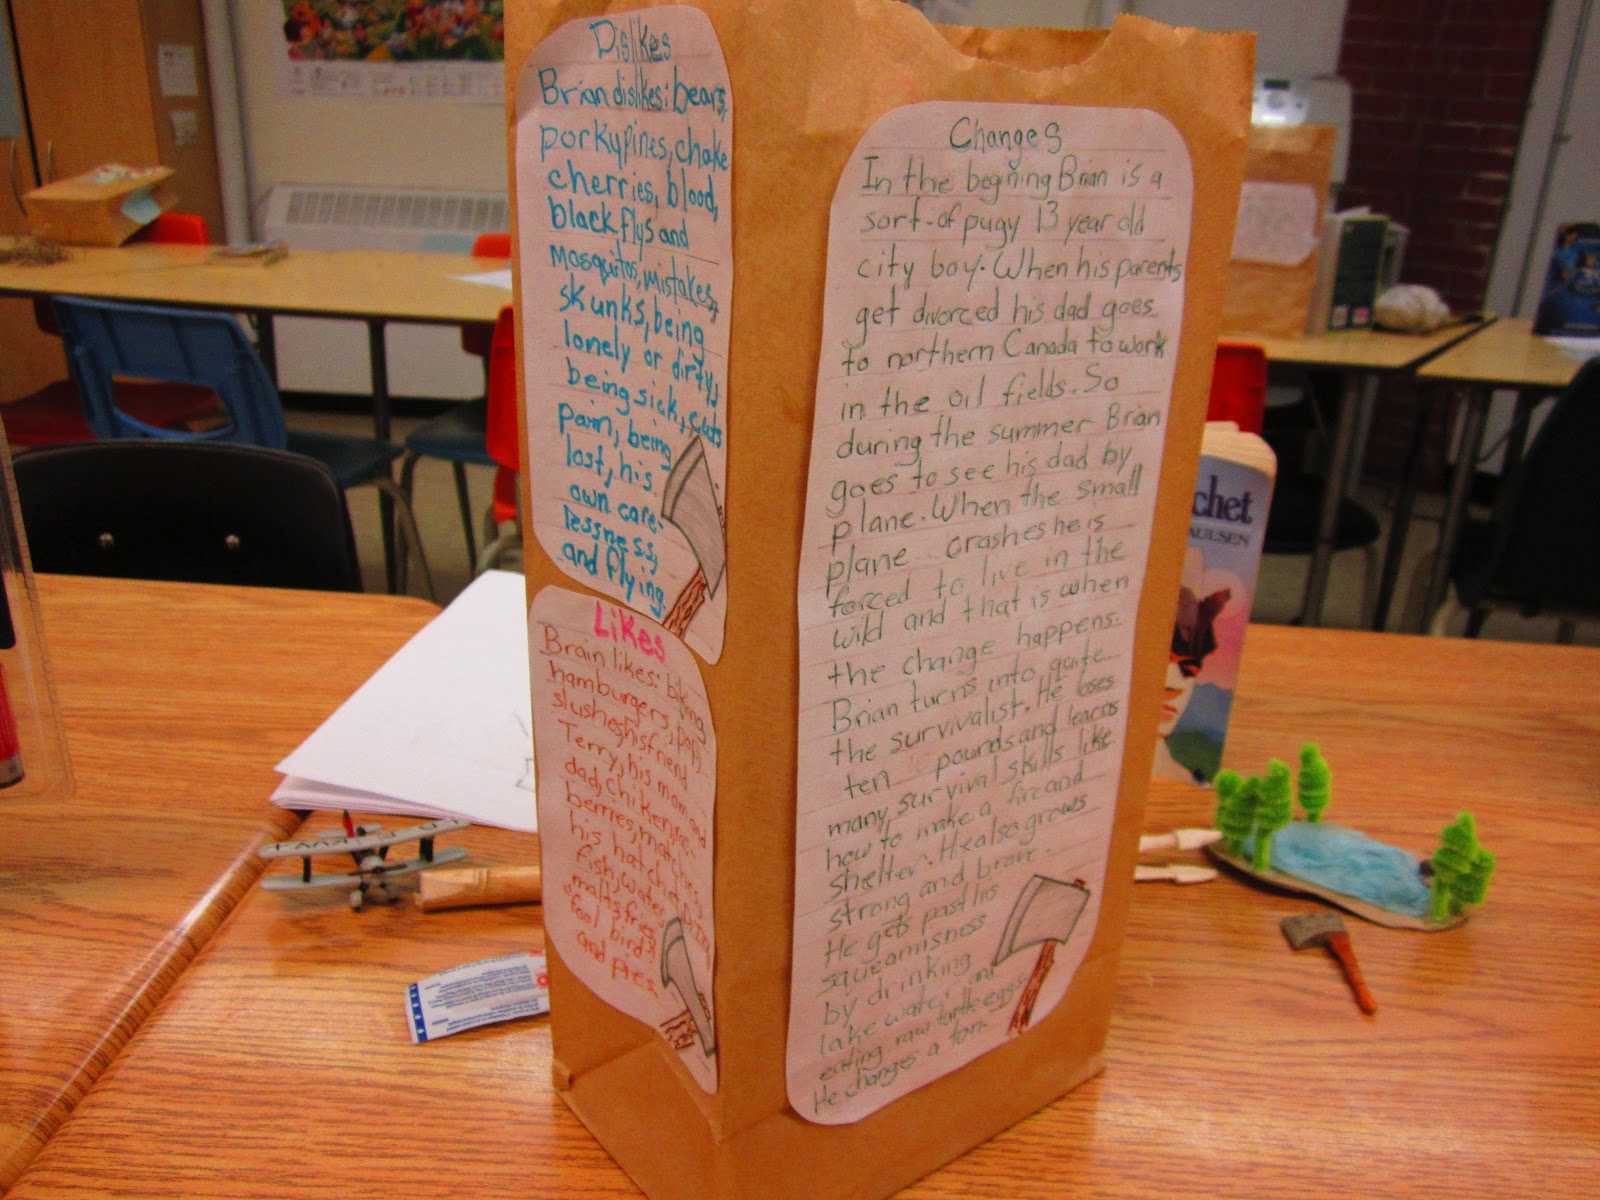 Dislikes
Brian dislikes: bears,
porkypines, choke
cherries, blood,
black flys and
mosquitos, mistakes,
skunks, being
lonely or dirty,
being sick, cuts
pain, being
lost, his
own care-
lessness,
and flying.
Likes
Brain likes: biking
hamburgers, pop,
slushes, his friend
Terry, his mom and
dad, chiken, ras-
berries, matches,
his hatchet,
fish, water
malts, fries
"fool birds"
and pies
Changes
In the begining Brian is a
sort-of pugy 13 year old
city boy. When his parents
get divorced his dad goes
to northern Canada to work
in the oil fields. So
during the summer Brian
goes to see his dad by
plane. When the small
plane crashes he is
forced to live in the
wild and that is when
the change happens.
Brian turns into quite
the survivalist. He loses
ten pounds and learns
many survival skills like
how to make a fire and
shelter. He also grows
strong and brave.
He gets past his
squeamisness
by drinking
lake water and
eating raw turtle eggs.
He changes a ton.
chet
AULSEN